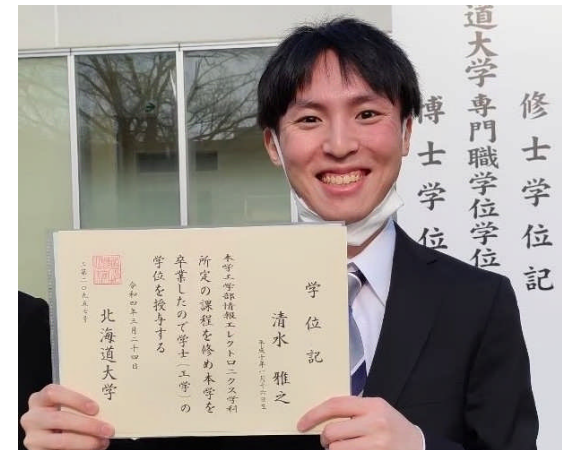 修士学位記
道大学専門職学位
博士学位
学位記
清水 雅之
本学工学部情報エレクトロニクス学科
所定の課程を修め本学を
卒業したので学士(工学)の
学位を授与する
令和四年三月二十四日
北海道大学